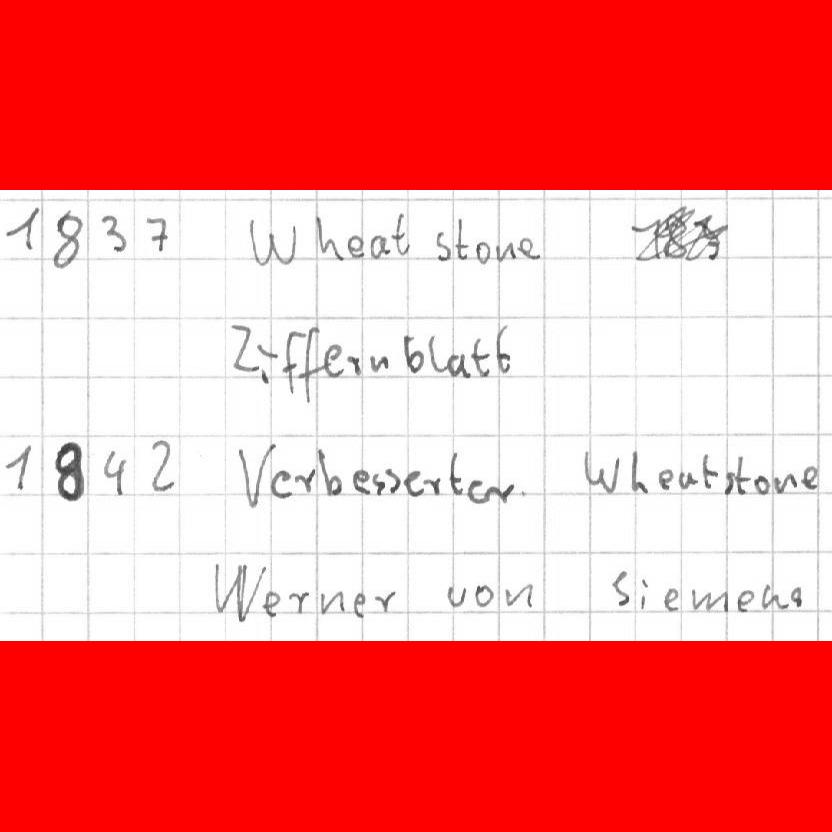 1837 Wheatstone
Ziffernblatt
1842 Verbesserter Wheatstone
Werner von Siemens